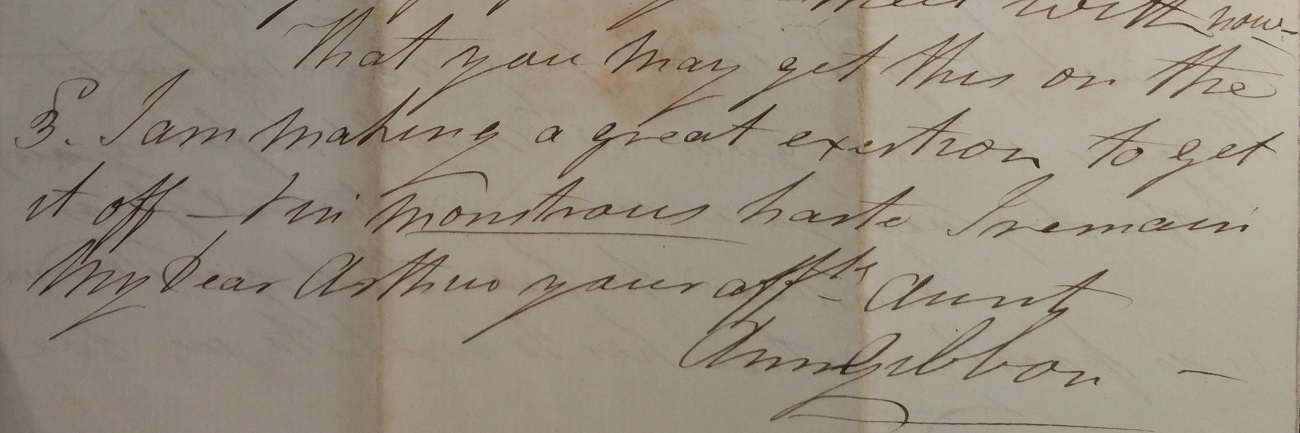 meet with now-
That you may get this on the
3. I am making a great exertion to get
it off - & in monstrous haste I remain
My Dear Arthur your affte Aunt
Ann Gibbon -